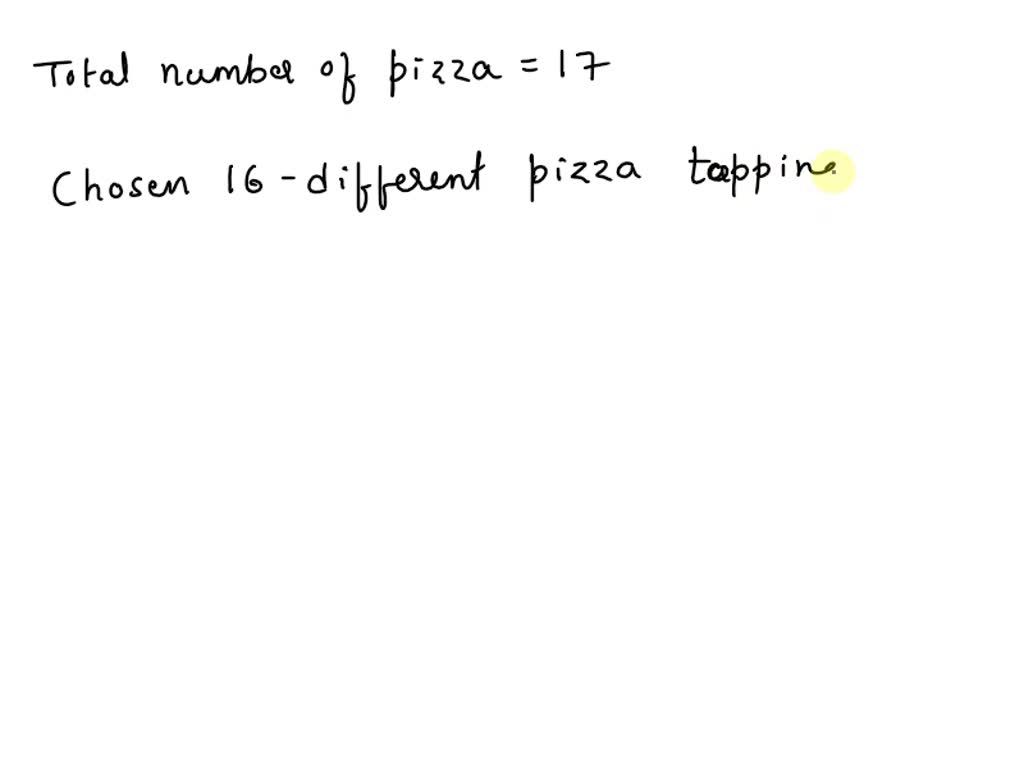 Total number of pizza = 17
Chosen 16 - different pizza tappin